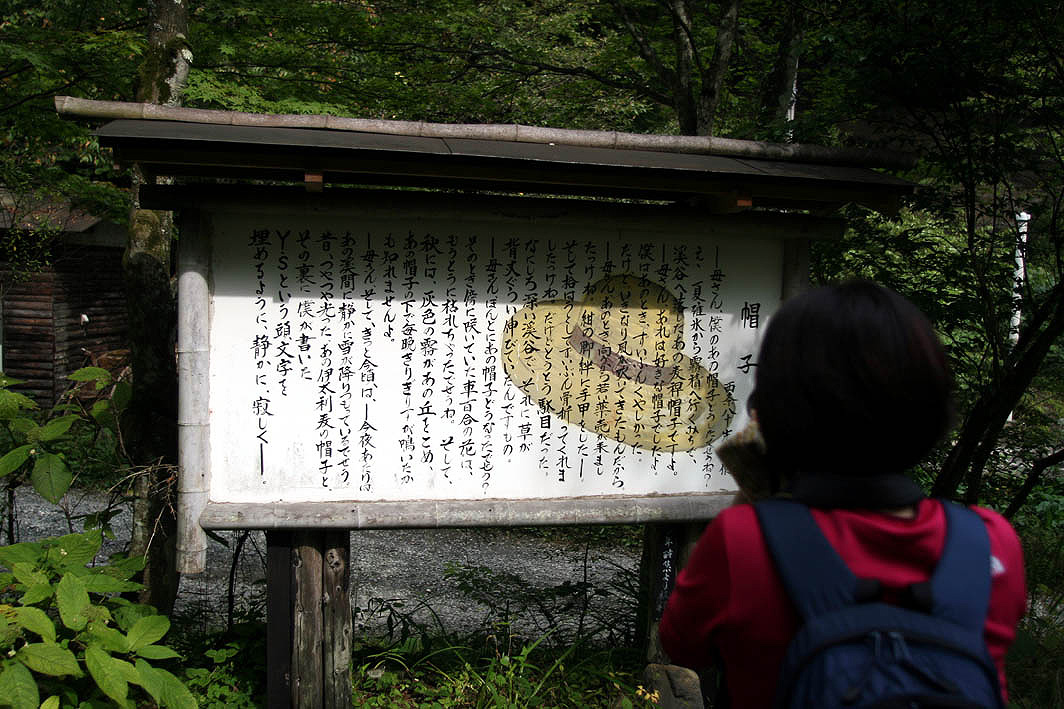 帽子
―母さん、僕のあの帽子どうなったでせうね
え、夏碓氷から霧積へ行くみちで、
渓谷へ落したあの麦稈帽子ですよ。
―母さん、あれは好きな帽子でしたよ。
僕はあのときずいぶんくやしかった
だけど、いきなり風が吹いてきたもんだから。
―母さん、あのとき向ふから若い薬売が来まし
たっけね。紺の脚絆に手甲をした―
そして拾はうとしてずいぶん骨折ってくれま
したっけね。だけどとうとう駄目だった。
なにしろ深い渓谷で、それに草が
背丈ぐらい伸びていたんですもの。
―母さんほんとにあの帽子どうなったでせう?
そのとき傍に咲いていた車百合の花は、
もうとうに枯れちゃったでせうね。そして、
秋には、灰色の霧があの丘をこめ、
あの帽子の下で毎晩きりぎりすが鳴いたか
も知れませんよ。
―母さん、そして、きっと今頃は、―今夜あたりは
あの渓間に静かに雪が降りつもっているでせう
昔、つやつや光ったあの伊太利麦の帽子と、
その裏に僕が書いた
Y・Sという頭文字を
埋めるように、静かに、寂しく―